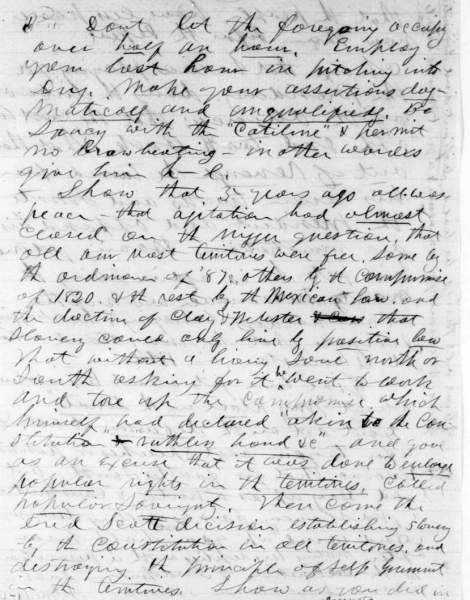 Dont let the foregoing occupy
over half an hour. Employ
your last hour in pitching into
Dug. Make your assertions dog-
matically and unqualifiedly. Be
Saucy with the "Catiline" & permit
no browbeating - in other words
give him h-l.
Show that 5 years ago all was
peace - that agitation had almost
ceased on the nigger question, that
all our West territories were free, some by
the ordinance of '87, others by the compromise
of 1820. & the rest by the Mexican law. and
the doctrine of Clay & Webster that
Slavery could only live by positive law
that without a living soul north or
South asking for it he went to work
and tore up the compromise which
himself had declared "akin to the Con-
stitution & ruthless hand &c" and gave
as an excuse that it was done to enlarge
popular rights in the territories, called
popular Sovereignty. Then came the
Dred Scott decision establishing slavery
by the Constitution in all territories, and
destroying the principle of self government
in the territories. Show as you did in